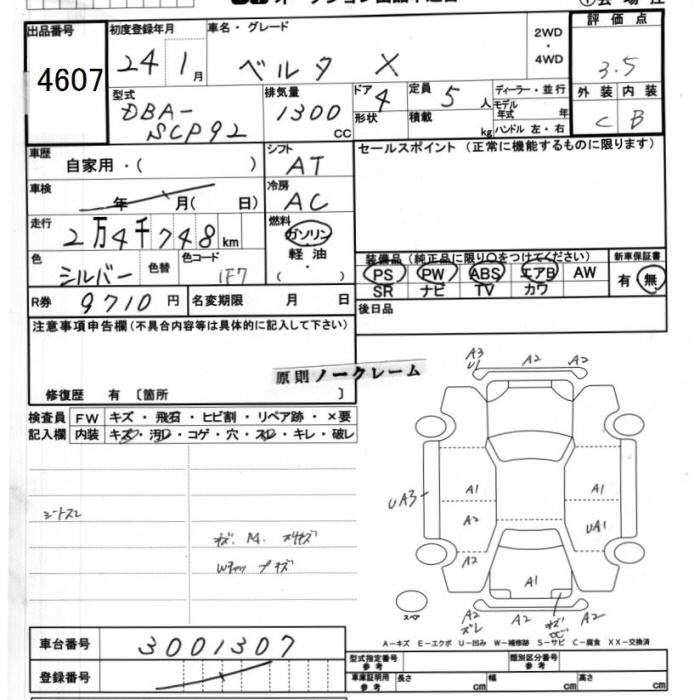 出品番号
4607
初度登録年月
24 1月
車名・グレード
ベルタ X
2WD
・
4WD
評価点
3.5
外装 内装
C B
型式
DBA-
SCP92
排気量
1300
CC
ドア
4
形状
定員
5人
積載
kg
ディーラー・並行
モデル
年式 年
ハンドル 左・右
車歴
自家用・( )
シフト
AT
セールスポイント (正常に機能するものに限ります)
車検
年 月( 日)
冷房
AC
走行
2万4千748km
燃料
ガソリン
軽油
( ・ )
色
シルバー
色替
色コード
1F7
装備品(純正品に限り〇をつけてください)
PS PW ABS エアB AW
SR ナビ TV カワ
新車保証書
有・無
R券 9710円
名変期限 月 日
後日品
注意事項申告欄(不具合内容等は具体的に記入して下さい)
原則ノークレーム
修復歴 有 〔箇所 〕
検査員
記入欄
FW キズ・飛石・ヒビ割・リペア跡・×要
内装 キズ・汚レ・コゲ・穴・スレ・キレ・破レ
シートスレ
A3
U1
A2
A2
UA3
A1
A2
A2
A1
UA1
A1
A2
ズレ
A2
A2
スペア
A−キズ E−エクボ U−凹み W−補修跡 S−サビ C−腐食 XX−交換済
車台番号
3001307
登録番号
型式指定番号
参考
類別区分番号
参考
車庫証明用
参考
長さ cm
幅 cm
高さ cm